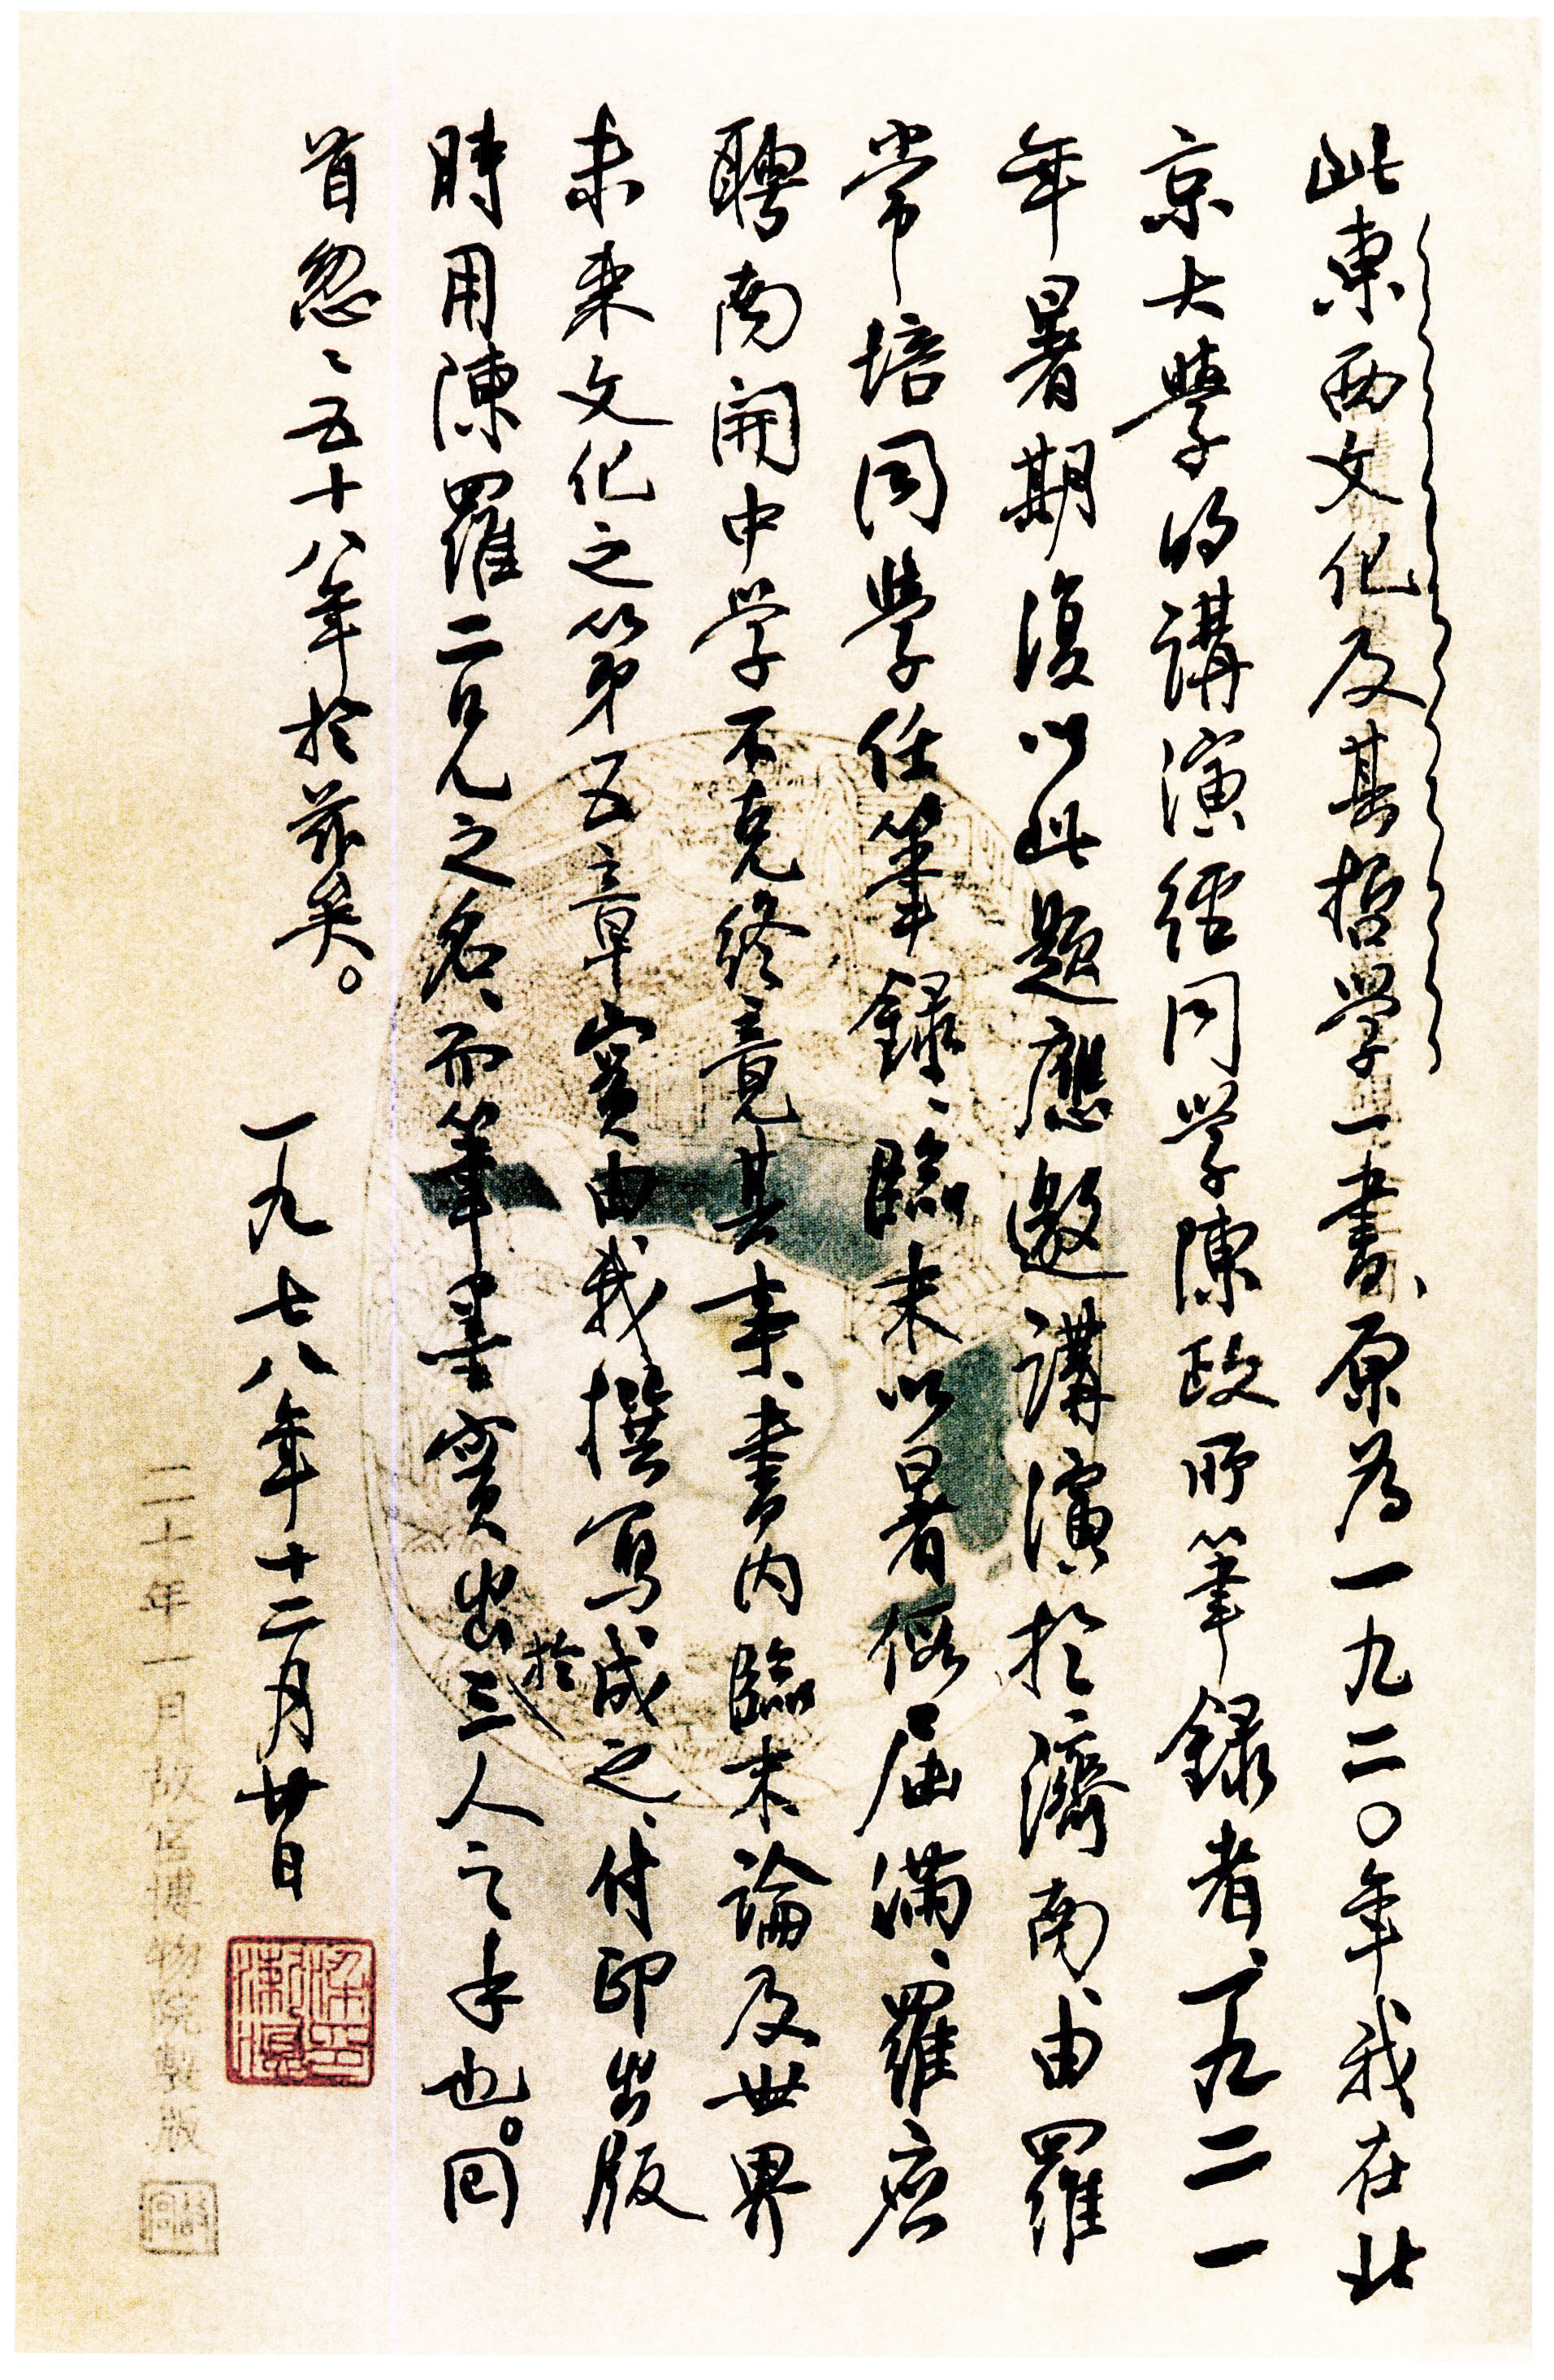 此東西文化及其哲学一書、原为一九二〇年我在北
京大學的講演經同学陳政所筆録者、一九二一
年暑期復以此題應邀講演於濟南、由羅
常培同學任筆録、臨末以暑假屆滿、羅應
聘南開中学不克終竟其事、書内臨末論及世界
未来文化之第五章實由我撰写成之、付印出版
時用陳羅二兄之名、而筆墨實出於三人之手也。回
首忽〻五十八年於茲矣。
一九七八年十二月廿日
梁漱溟印
二十年一月故宮博物院製版